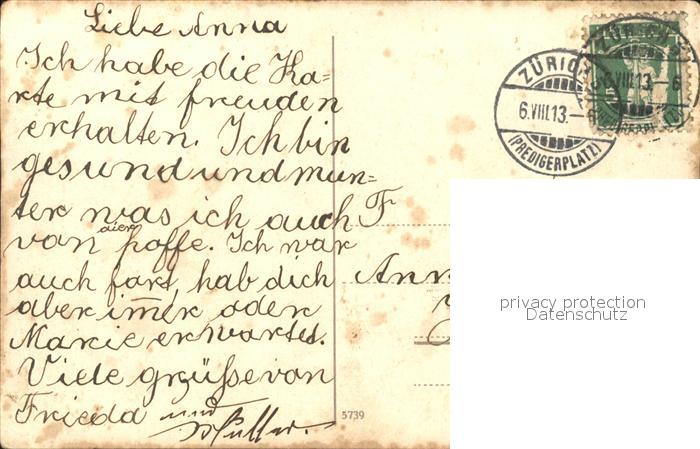 Liebe Anna
Ich habe die Ka=
rte mit freuden
erhalten. Ich bin
gesund und mun=
ter was ich auch
van hoffe. Ich war
auch fort, hab dich
aber im̅er oder
Marie erwartet.
Viele grüsse van
Frieda und
F
Ann
ZÜRICH
6.VIII.13.
(PREDIGERPLATZ)
ZÜRICH
VIII.13.-6
5739
privacy protection
Datenschutz